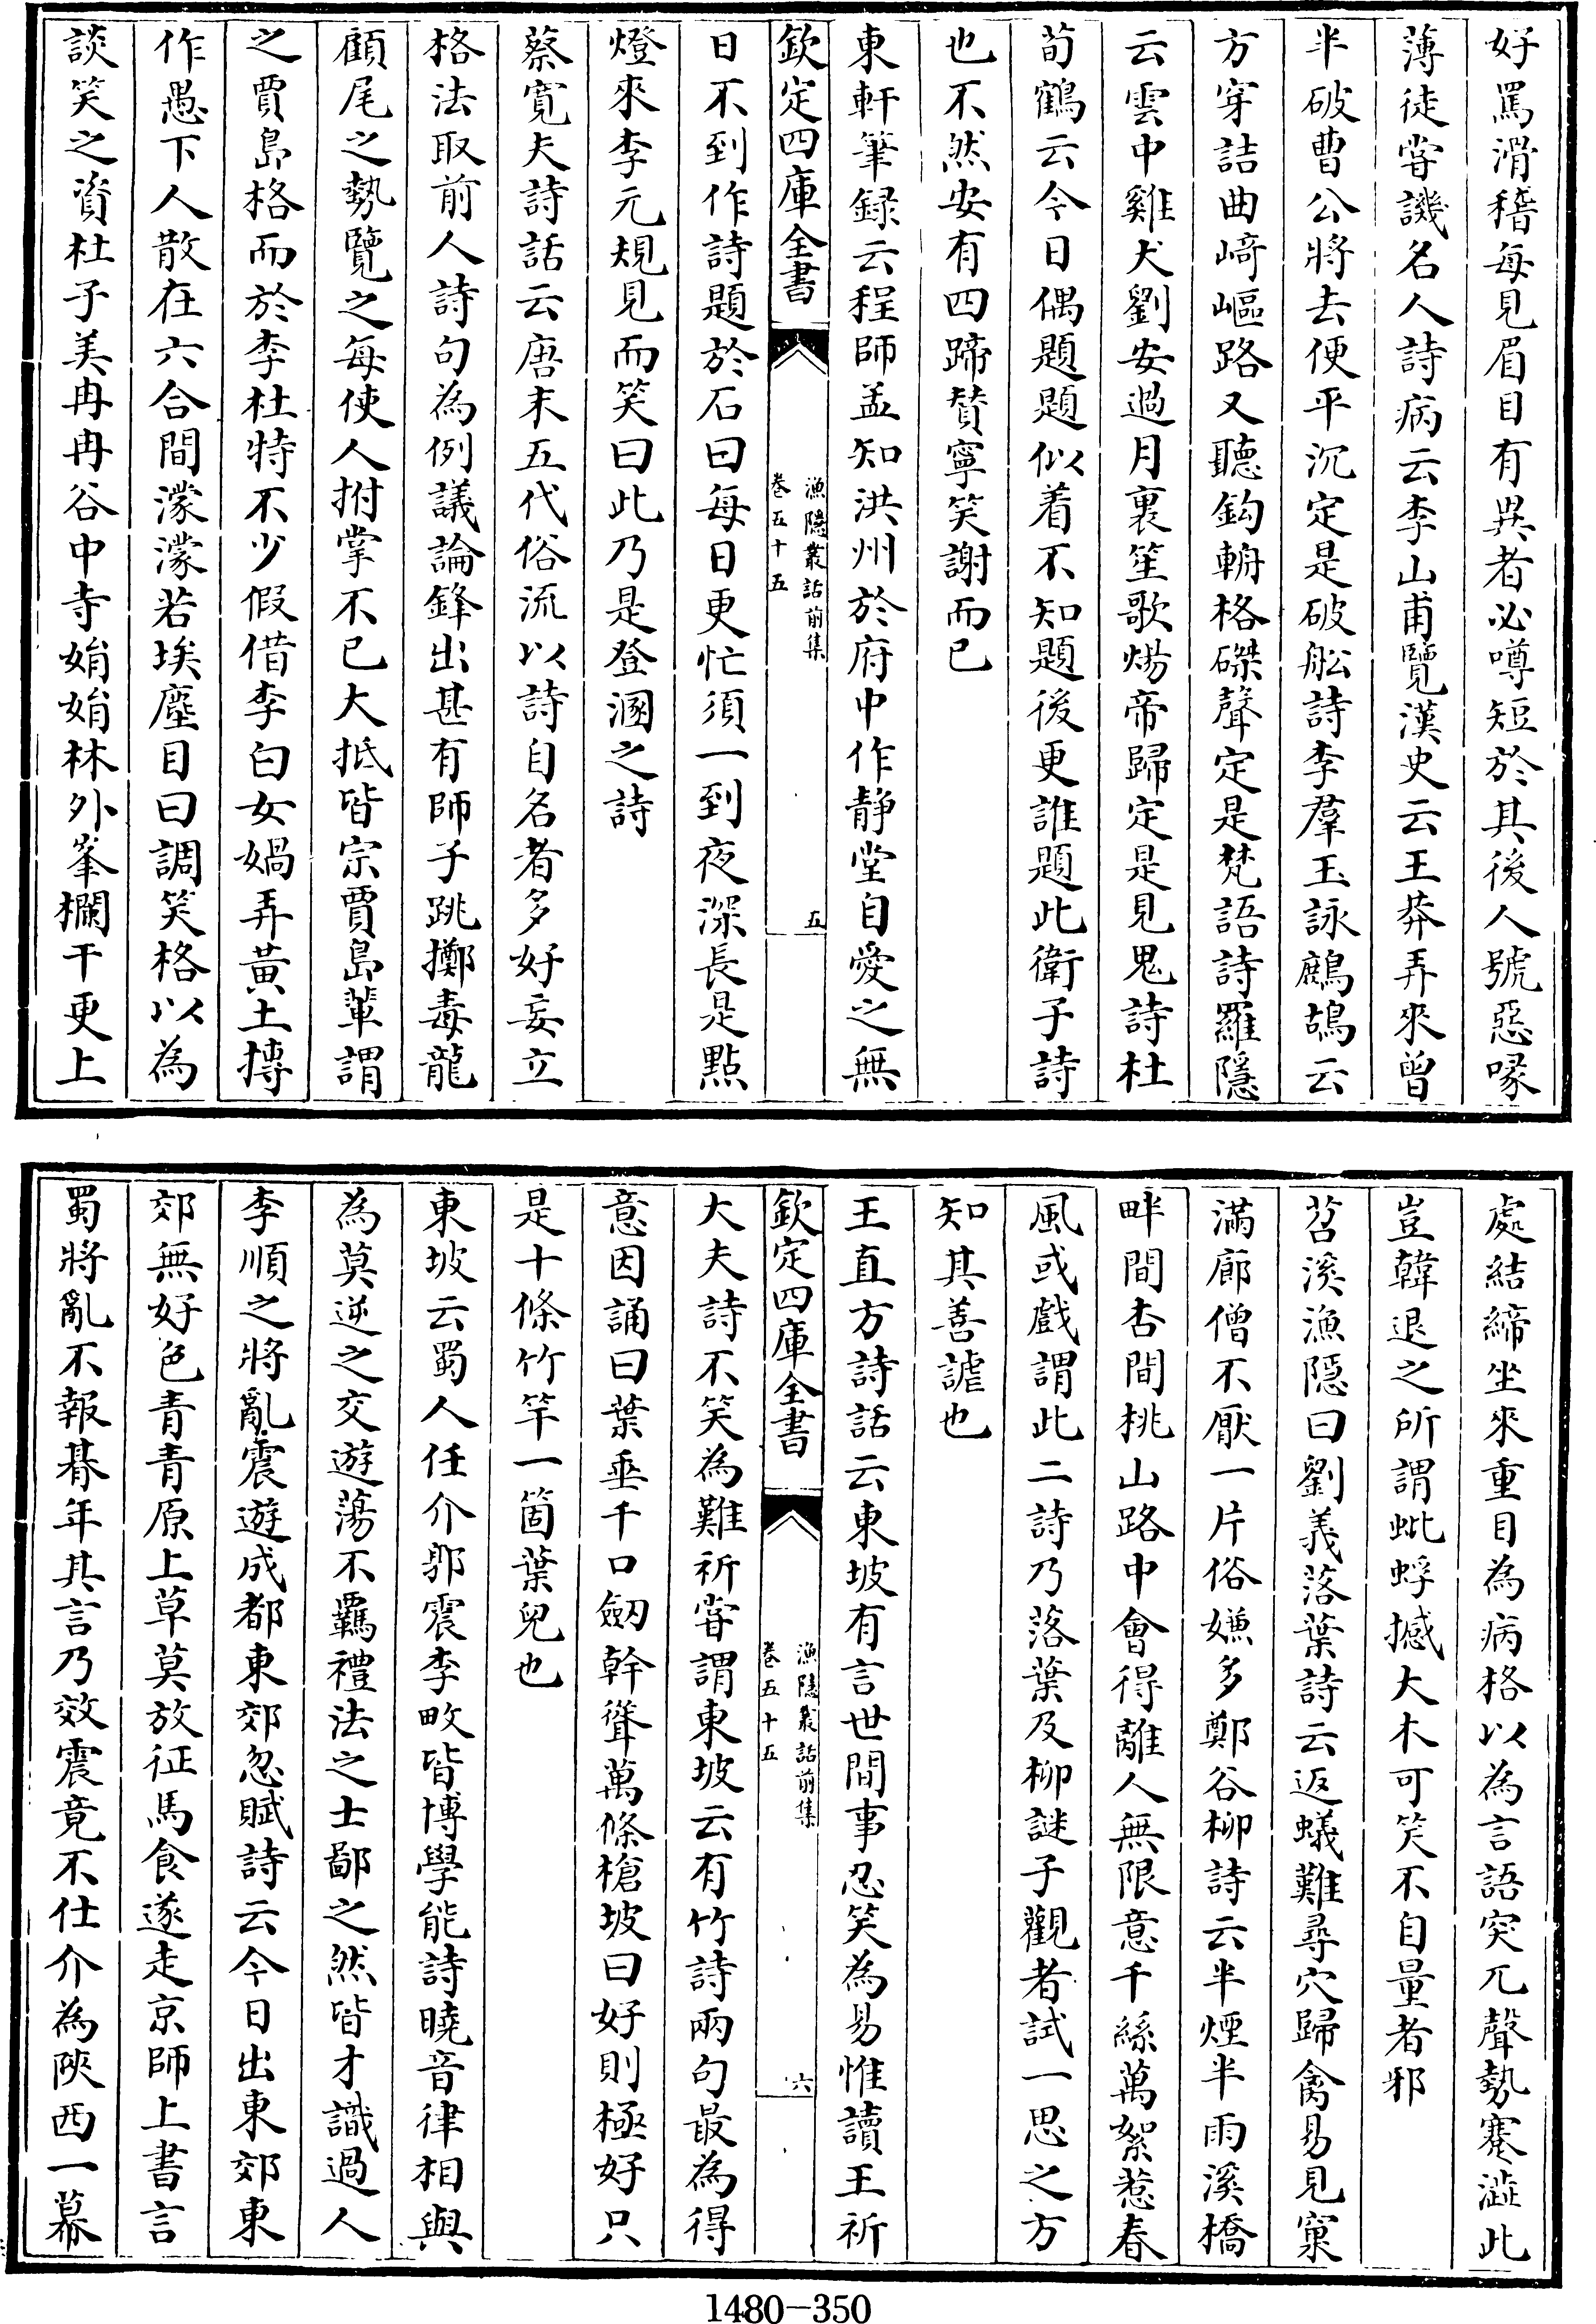 好罵滑稽每見眉目有異者必噂短於其後人號惡喙
薄徒嘗譏名人詩病云李山甫覽漢史云王莽弄來曾
半破曹公將去便平沉定是破船詩李羣玉詠鷓鴣云
方穿詰曲崎嶇路又聽鈎輈格磔聲定是梵語詩羅隱
云雲中雞犬劉安過月裏笙歌煬帝歸定是見鬼詩杜
荀鶴云今日偶題題似着不知題後更誰題此衛子詩
也不然安有四蹄賛寧笑謝而已
東軒筆録云程師孟知洪州於府中作靜堂自愛之無
欽定四庫全書
漁隱叢話前集
卷五十五
五
日不到作詩題於石曰每日更忙須一到夜深長是點
燈來李元規見而笑曰此乃是登溷之詩
蔡寛夫詩話云唐末五代俗流以詩自名者多好妄立
格法取前人詩句為例議論鋒出甚有師子跳擲毒龍
顧尾之勢覽之每使人拊掌不已大抵皆宗賈島輩謂
之賈島格而於李杜特不少假借李白女媧弄黄土摶
作愚下人散在六合間濛濛若埃塵目曰調笑格以為
談笑之資杜子美冉冉谷中寺娟娟林外峯欄干更上
處結締坐來重目為病格以為言語突兀聲勢蹇澁此
豈韓退之所謂蚍蜉撼大木可笑不自量者邪
苕溪漁隱曰劉義落葉詩云返蟻難尋穴歸禽易見窠
滿廊僧不厭一片俗嫌多鄭谷柳詩云半煙半雨溪橋
畔間杏間桃山路中會得離人無限意千絲萬絮惹春
風或戲謂此二詩乃落葉及柳謎子觀者試一思之方
知其善謔也
王直方詩話云東坡有言世間事忍笑為易惟讀王祈
欽定四庫全書
漁隱叢話前集
卷五十五
六
大夫詩不笑為難祈嘗謂東坡云有竹詩兩句最為得
意因誦曰葉垂千口劔幹聳萬條槍坡曰好則極好只
是十條竹竿一箇葉兒也
東坡云蜀人任介郭震李畋皆博學能詩曉音律相與
為莫逆之交遊蕩不羈禮法之士鄙之然皆才識過人
李順之將亂震遊成都東郊忽賦詩云今日出東郊東
郊無好色青青原上草莫放征馬食遂走京師上書言
蜀將亂不報朞年其言乃效震竟不仕介為陜西一幕
1480-350